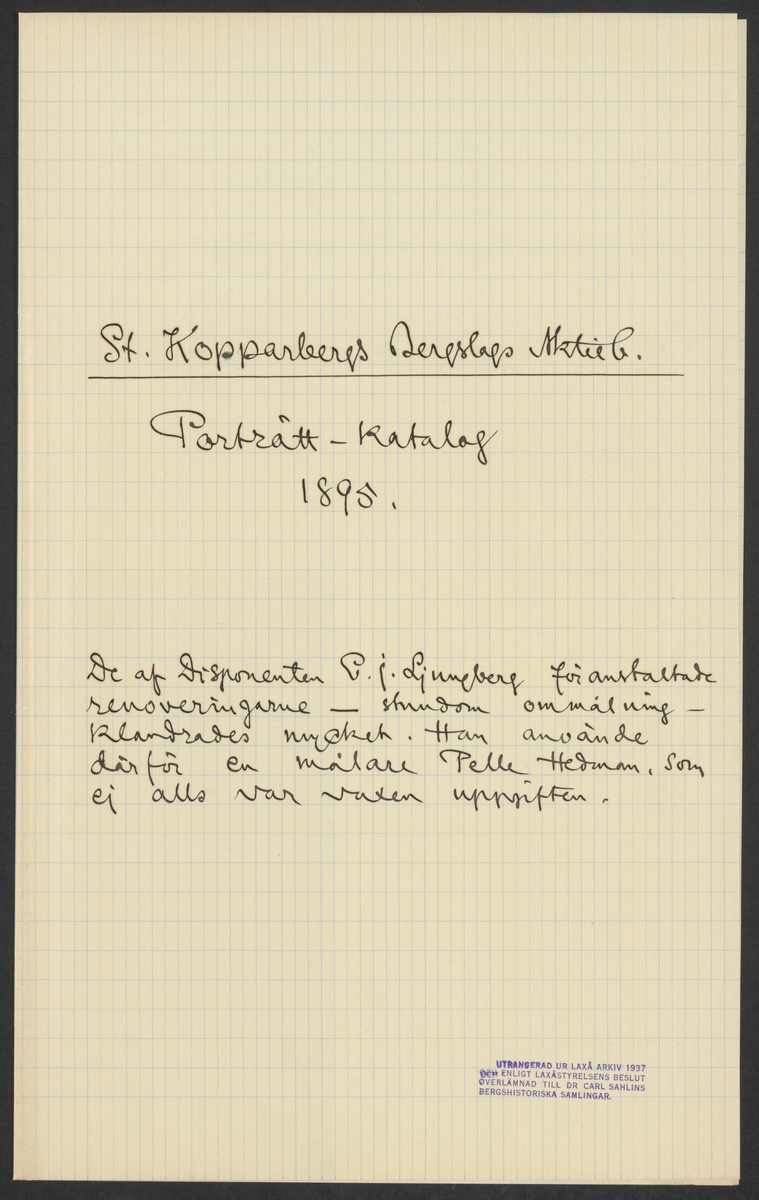 St. Kopparbergs Bergslags Aktieb.
Porträtt-katalog
1895.
De af Disponenten E. j. Ljungberg föranstaltade
renoveringarne – stundom ommålning –
klandrades mycket. Han använde
därför en målare Pelle Hedman, som
ej alls var vuxen uppgiften.
UTRANGERAD UR LAXÅ ARKIV 1937
OCH ENLIGT LAXÅSTYRELSENS BESLUT
ÖVERLÄMNAD TILL DR CARL SAHLINS
BERGSHISTORISKA SAMLINGAR.